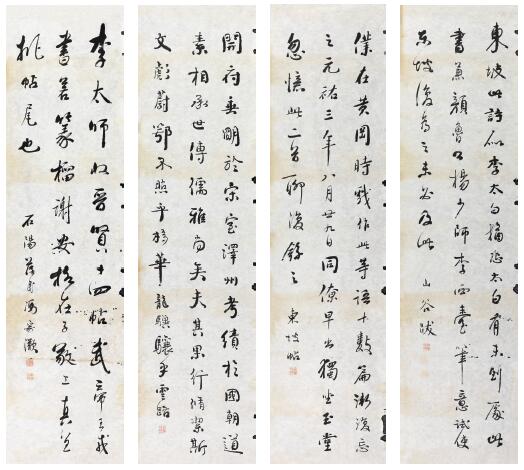 東坡此詩似李太白猶恐太白有未到處此
書兼顏魯公楊少師李西臺筆意試使
東坡復為之未必及此
山谷跋
僕在黃岡時戲作此等語十數篇漸復忘
之元祐三年八月廿九日同僚早出獨坐玉堂
忽憶此二首聊復錄之
東坡帖
開府垂明於宋室澤州考績於國朝道
素相承世傳儒雅尚矣夫其果行脩潔斯
文彪蔚鄂不照乎棣華龍驥驤乎雲路
李太師收晉賢十四帖武帝王戎
書若篆籀謝安格在子敬上真宜
批帖尾也
石陽